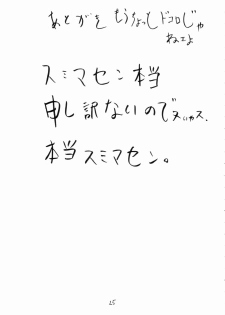 あとがき もうちょっとドコロじゃ
ねェよ
スミマセン本当
申し訳ないので
本当スミマセン。
25